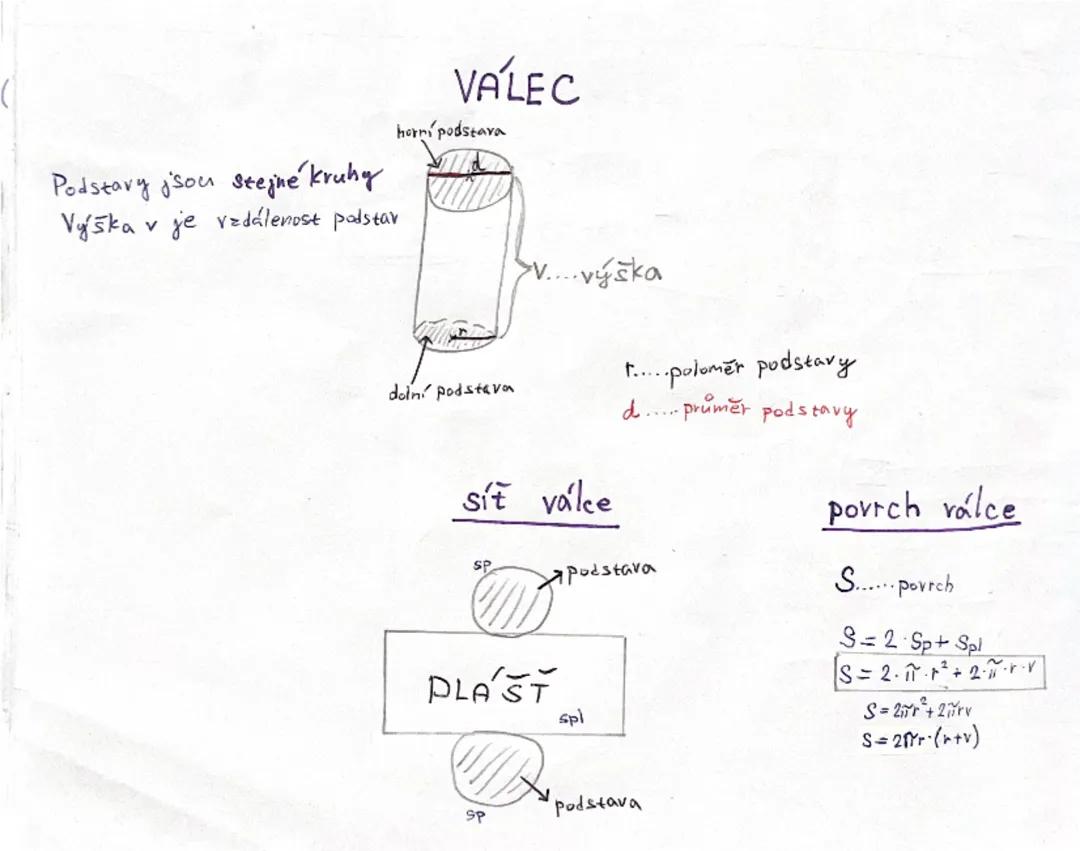 VÁLEC
horní podstava
d
Podstavy jsou stejné kruhy
Výška v je vzdálenost podstav
v....výška
r
dolní podstava
r.....poloměr podstavy
d.....průměr podstavy
síť válce
sp
podstava
PLÁŠŤ
spl
podstava
sp
povrch válce
S......povrch
S = 2 · Sp + Spl
S = 2 · π · r² + 2 · π · r · v
S = 2πr² + 2πrv
S = 2πr · (r+v)